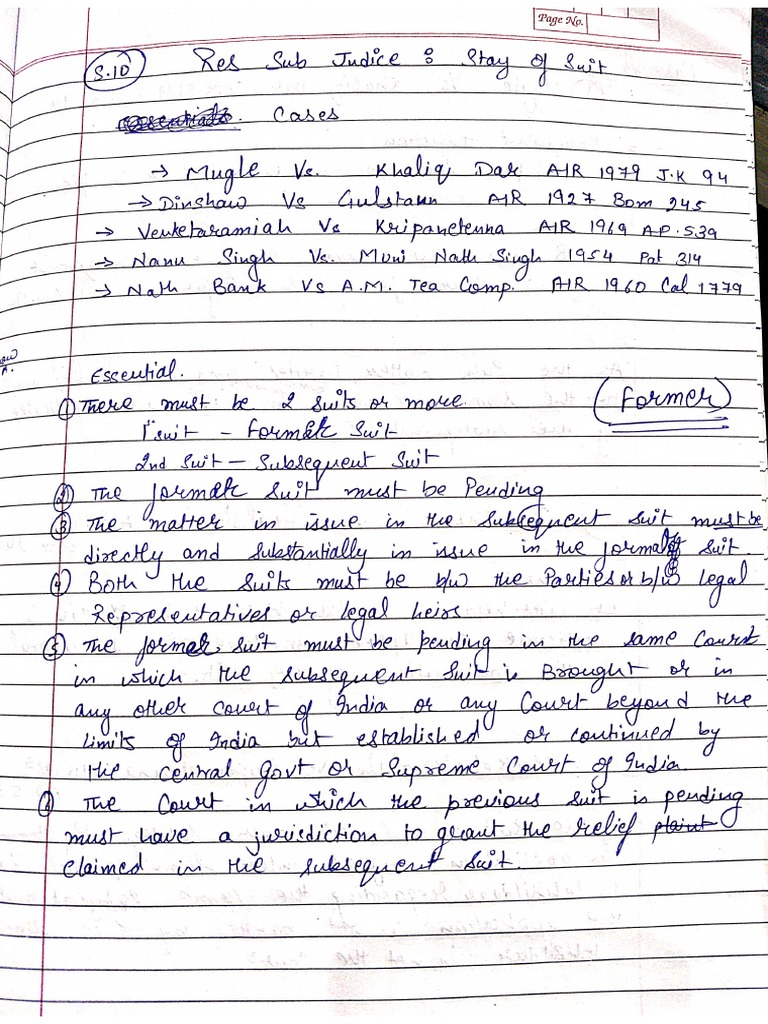 Page No.
S.10 Res Sub Judice : Stay of Suit
Cases
→ Mugle Vs. Khaliq Dar AIR 1979 J.K 94
→ Dinshaw Vs Gulstaun AIR 1927 Bom 245
→ Venketaramiah Vs Kripanetenna AIR 1969 A.P. 539
→ Nanu Singh Vs. Muni Nath Singh 1954 Pat 314
→ Nath Bank Vs A.M. Tea Comp. AIR 1960 Cal 1779
Essential.
① There must be 2 suits or more. (Former)
1st suit - Former Suit
2nd Suit - Subsequent Suit
② The former suit must be Pending
③ The matter in issue in the subsequent suit must be
directly and substantially in issue in the former suit.
④ Both the suits must be b/w the Parties or b/w legal
Representatives or legal heirs
⑤ The former suit must be pending in the same Court
in which the subsequent suit is Brought or in
any other court of India or any Court beyond the
limits of India but established or continued by
the central Govt or Supreme Court of India.
⑥ The Court in which the previous suit is pending
must have a jurisdiction to grant the relief plaint
claimed in the subsequent suit.